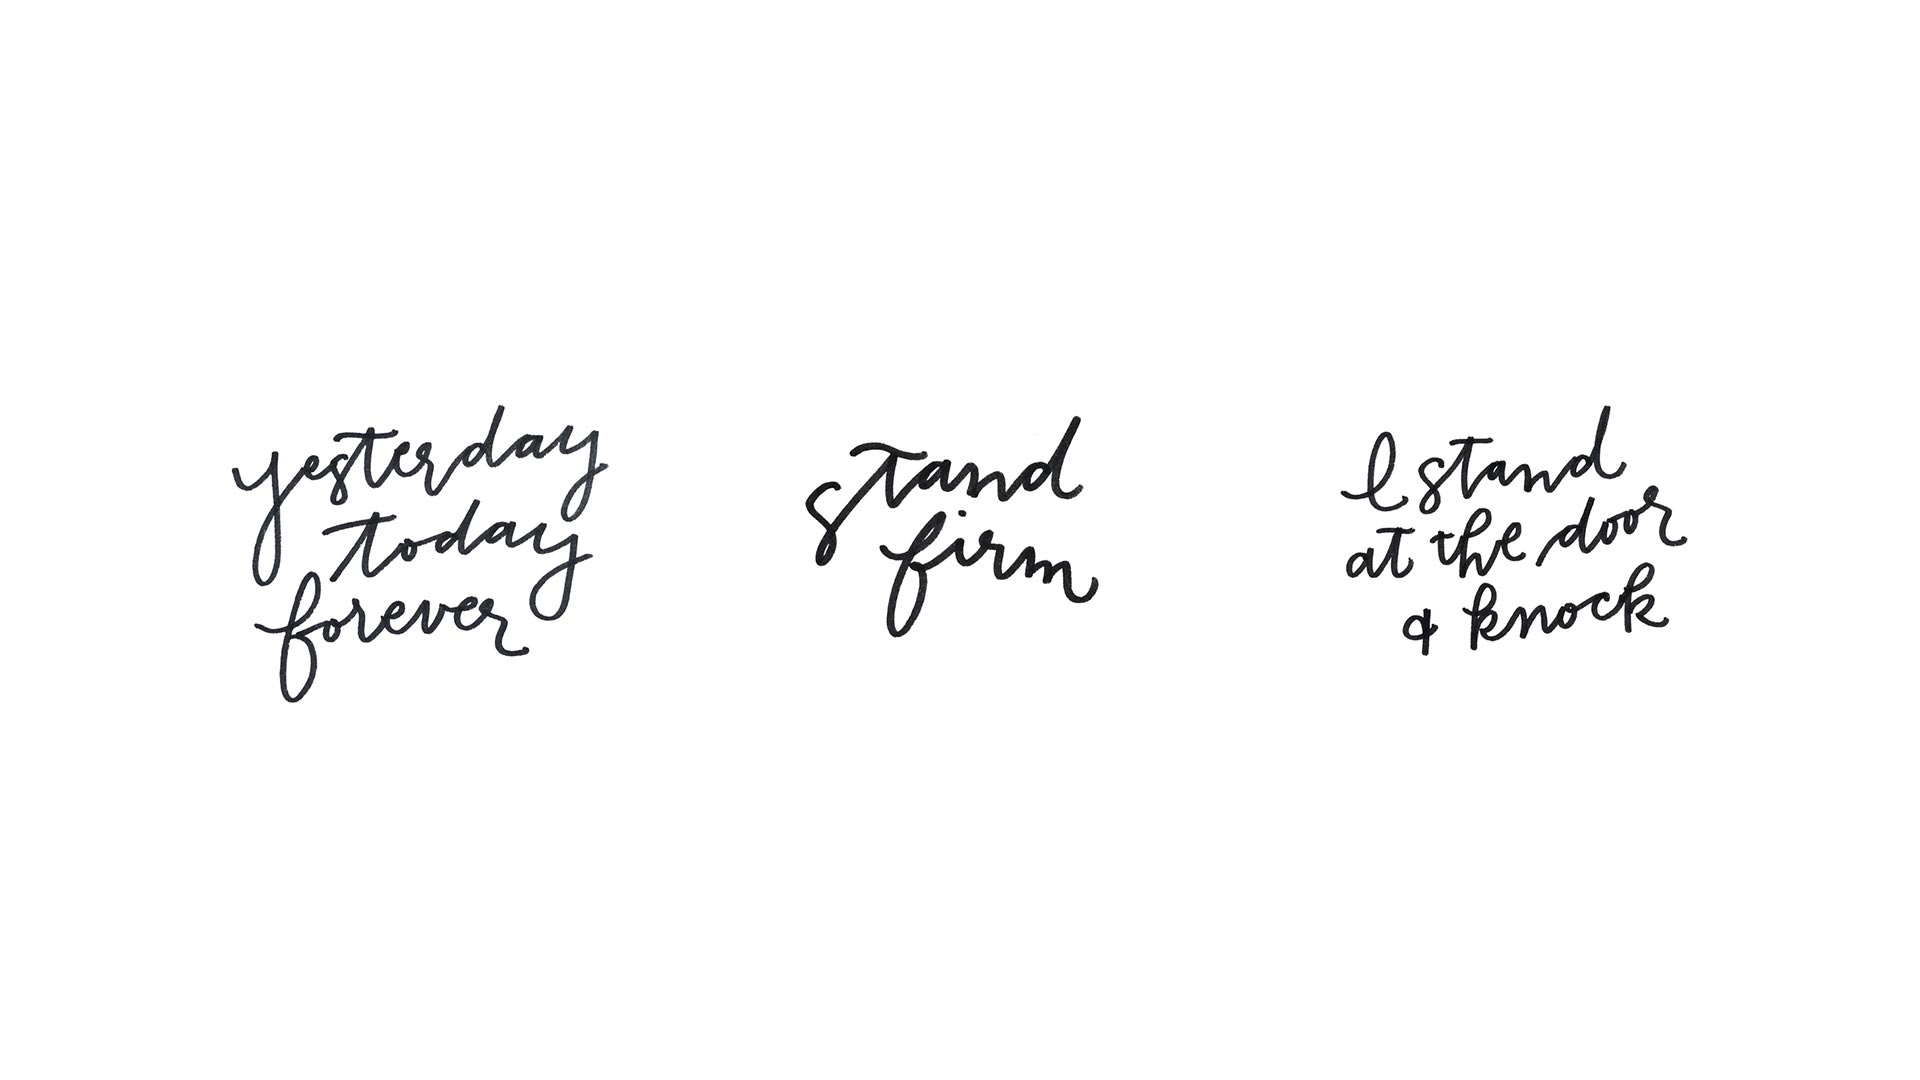 yesterday
today
forever
stand
firm
I stand
at the door
& knock